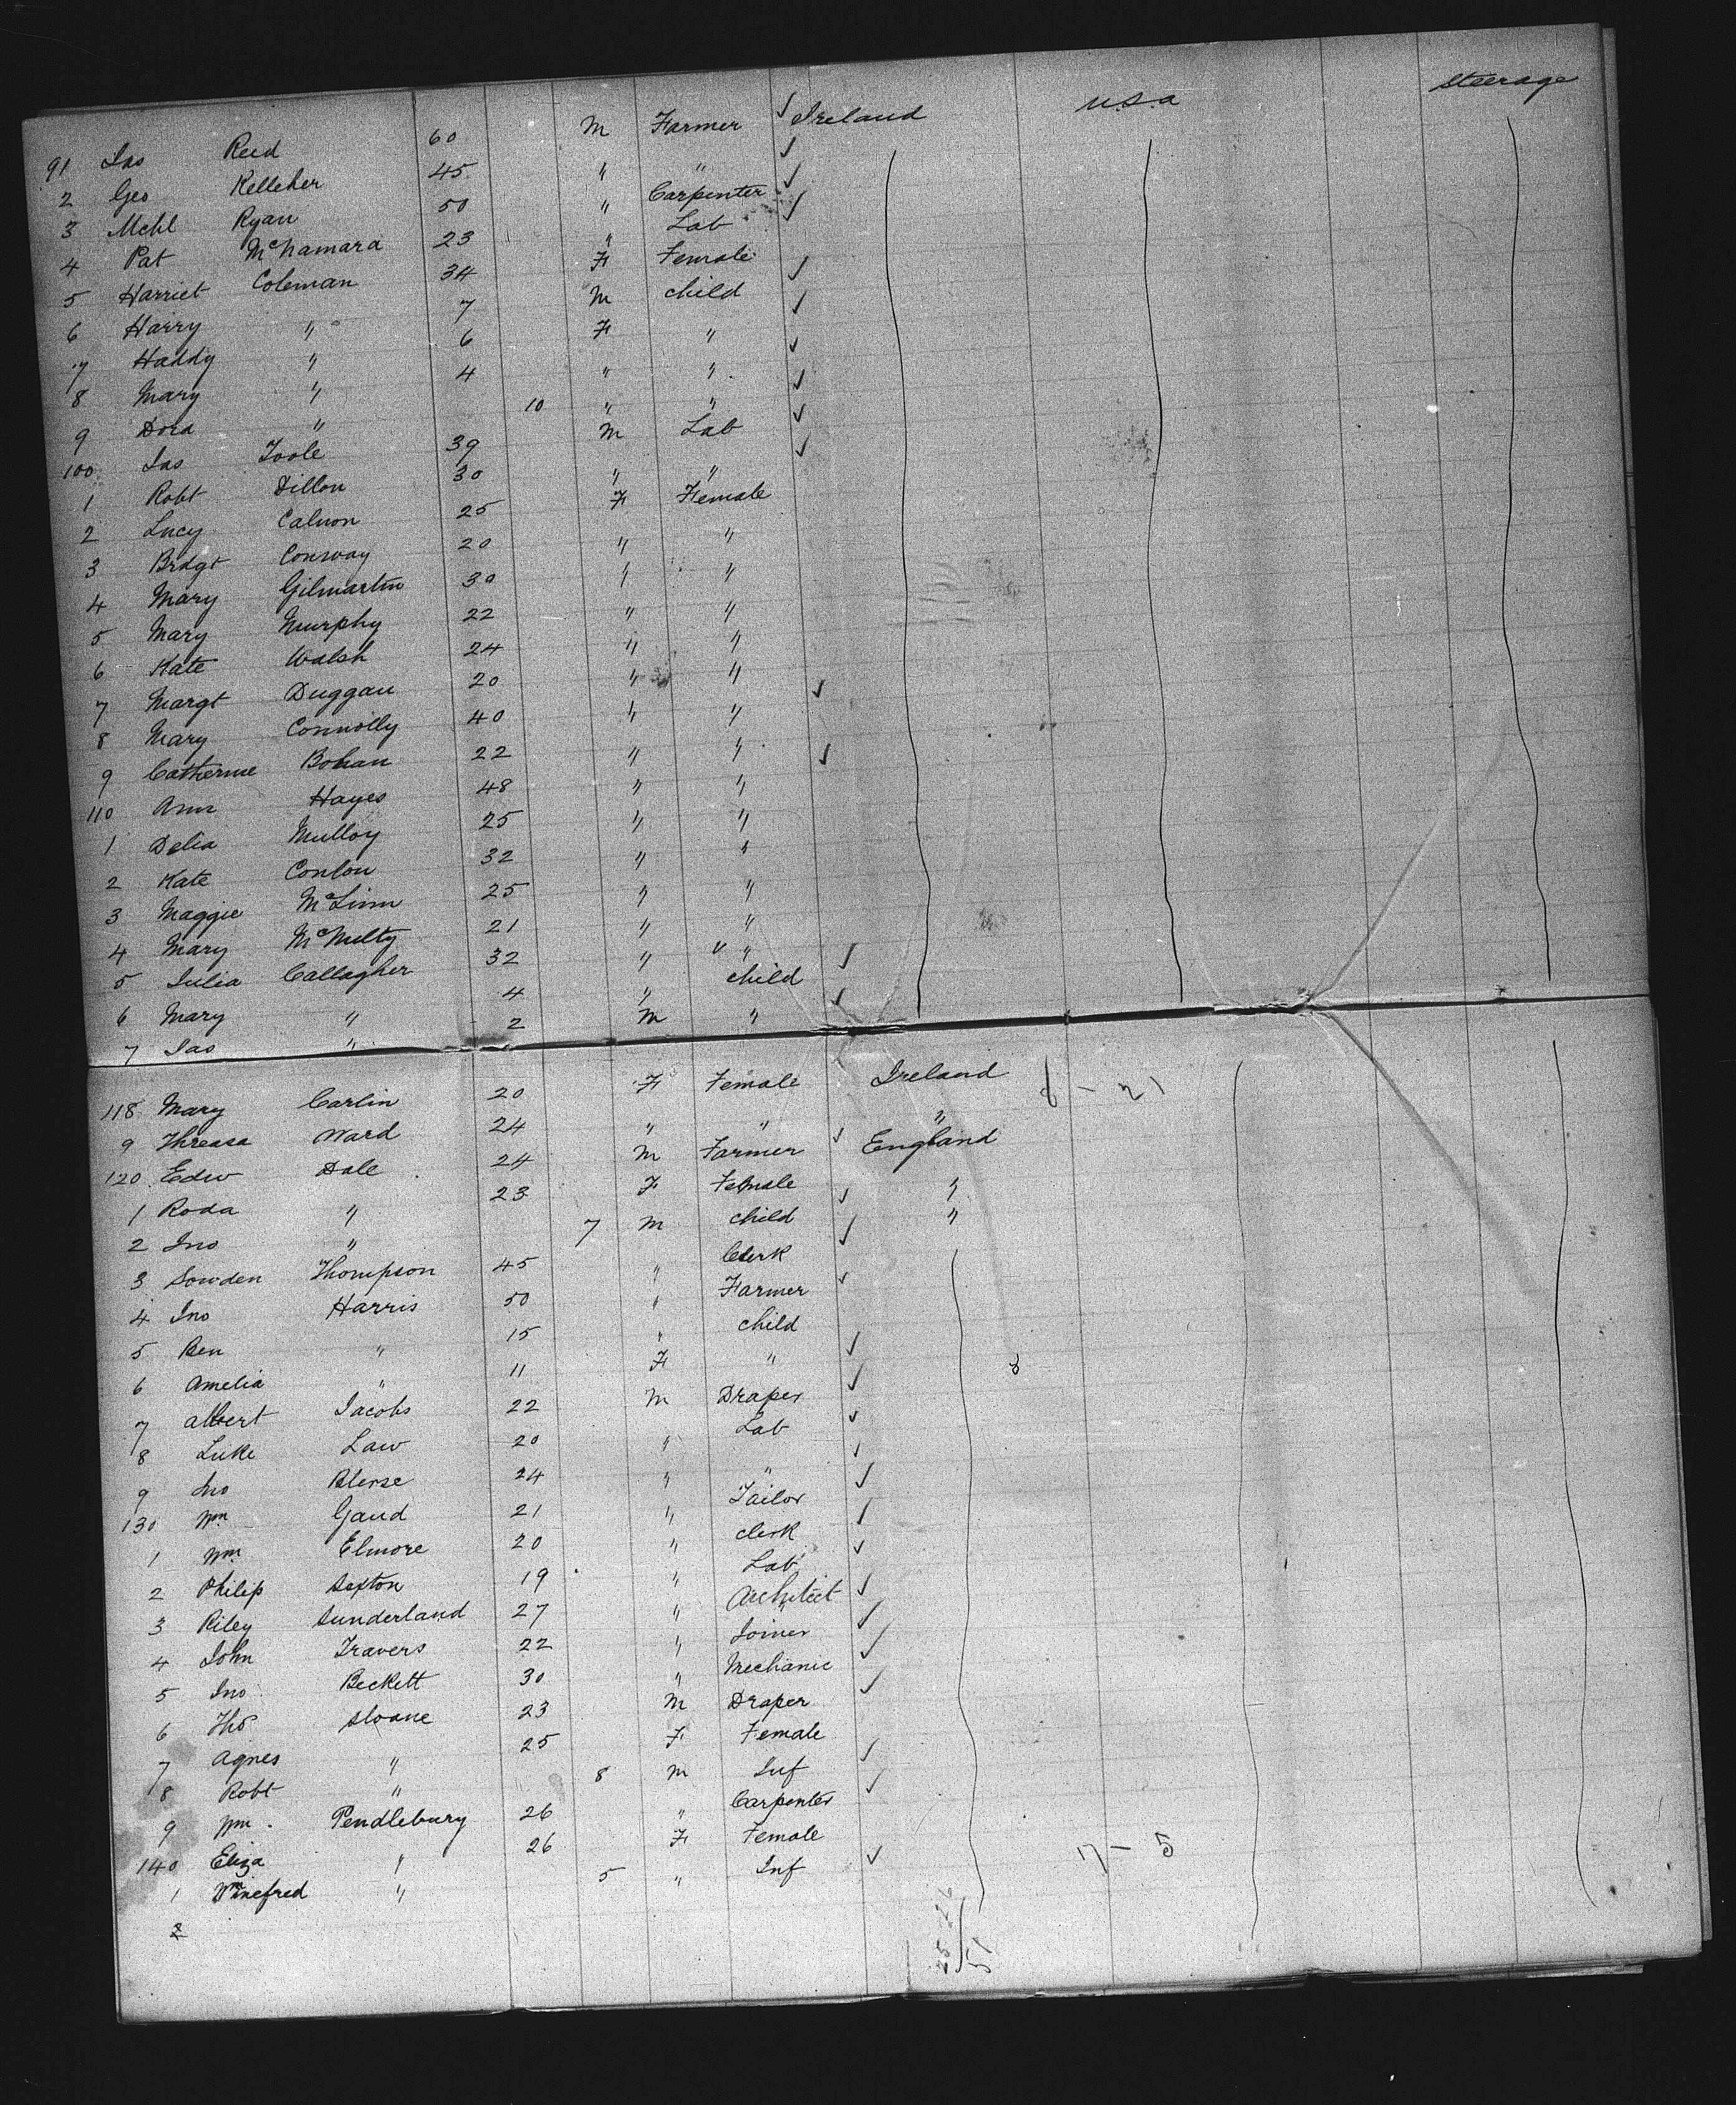 91 Jas Reed 60 M Farmer ✓ Ireland U.S.A Steerage
2 Geo Kelleher 45 " " ✓
3 Mchl Ryan 50 " Carpenter ✓
4 Pat McNamara 23 " Lab ✓
5 Harriet Coleman 34 F Female
6 Harry " 7 M child ✓
7 Haddy " 6 F " ✓
8 Mary " 4 " " ✓
9 Dora " 10 " " ✓
100 Jas Toole 39 M Lab ✓
1 Robt Dillon 30 " " ✓
2 Lucy Calnon 25 F Female
3 Brdgt Conway 20 " "
4 Mary Gilmartin 30 " "
5 Mary Murphy 22 " "
6 Kate Walsh 24 " "
7 Margt Duggan 20 " "
8 Mary Connolly 40 " " ✓
9 Catherine Bohan 22 " "
110 Ann Hayes 48 " " ✓
1 Delia Mulloy 25 " "
2 Kate Conlon 32 " "
3 Maggie McLinn 25 " "
4 Mary McNulty 21 " "
5 Julia Callagher 32 " "
6 Mary " 4 " child ✓
7 Jas " 2 M " ✓
118 Mary Carlin 20 F Female Ireland 6 - 21
9 Threasa Ward 24 " " "
120 Edw Dale 24 M Farmer ✓ England
1 Roda " 23 F Female "
2 Jno " 7 M child ✓ "
3 Sowden Thompson 45 " Clerk ✓
4 Jno Harris 50 " Farmer ✓
5 Ben " 15 " child
6 Amelia " 11 F " ✓
7 Albert Jacobs 22 M Draper ✓
8 Luke Law 20 " Lab ✓
9 Jno 24 " " ✓
130 Wm Gaud 21 " Tailor ✓
1 Wm Elmore 20 " clerk ✓
2 Philip Sexton 19 " Lab ✓
3 Riley Sunderland 27 " Architect ✓
4 John Travers 22 " Joiner ✓
5 Jno Beckett 30 " Mechanic ✓
6 Thos Sloane 23 M Draper ✓
7 Agnes " 25 F Female
8 Robt " 8 M Inf ✓
9 Wm. Pendlebury 26 " Carpenter ✓
140 Eliza " 26 F Female
1 Winefred " 5 " Inf ✓ 17 - 5
2
25 26
51